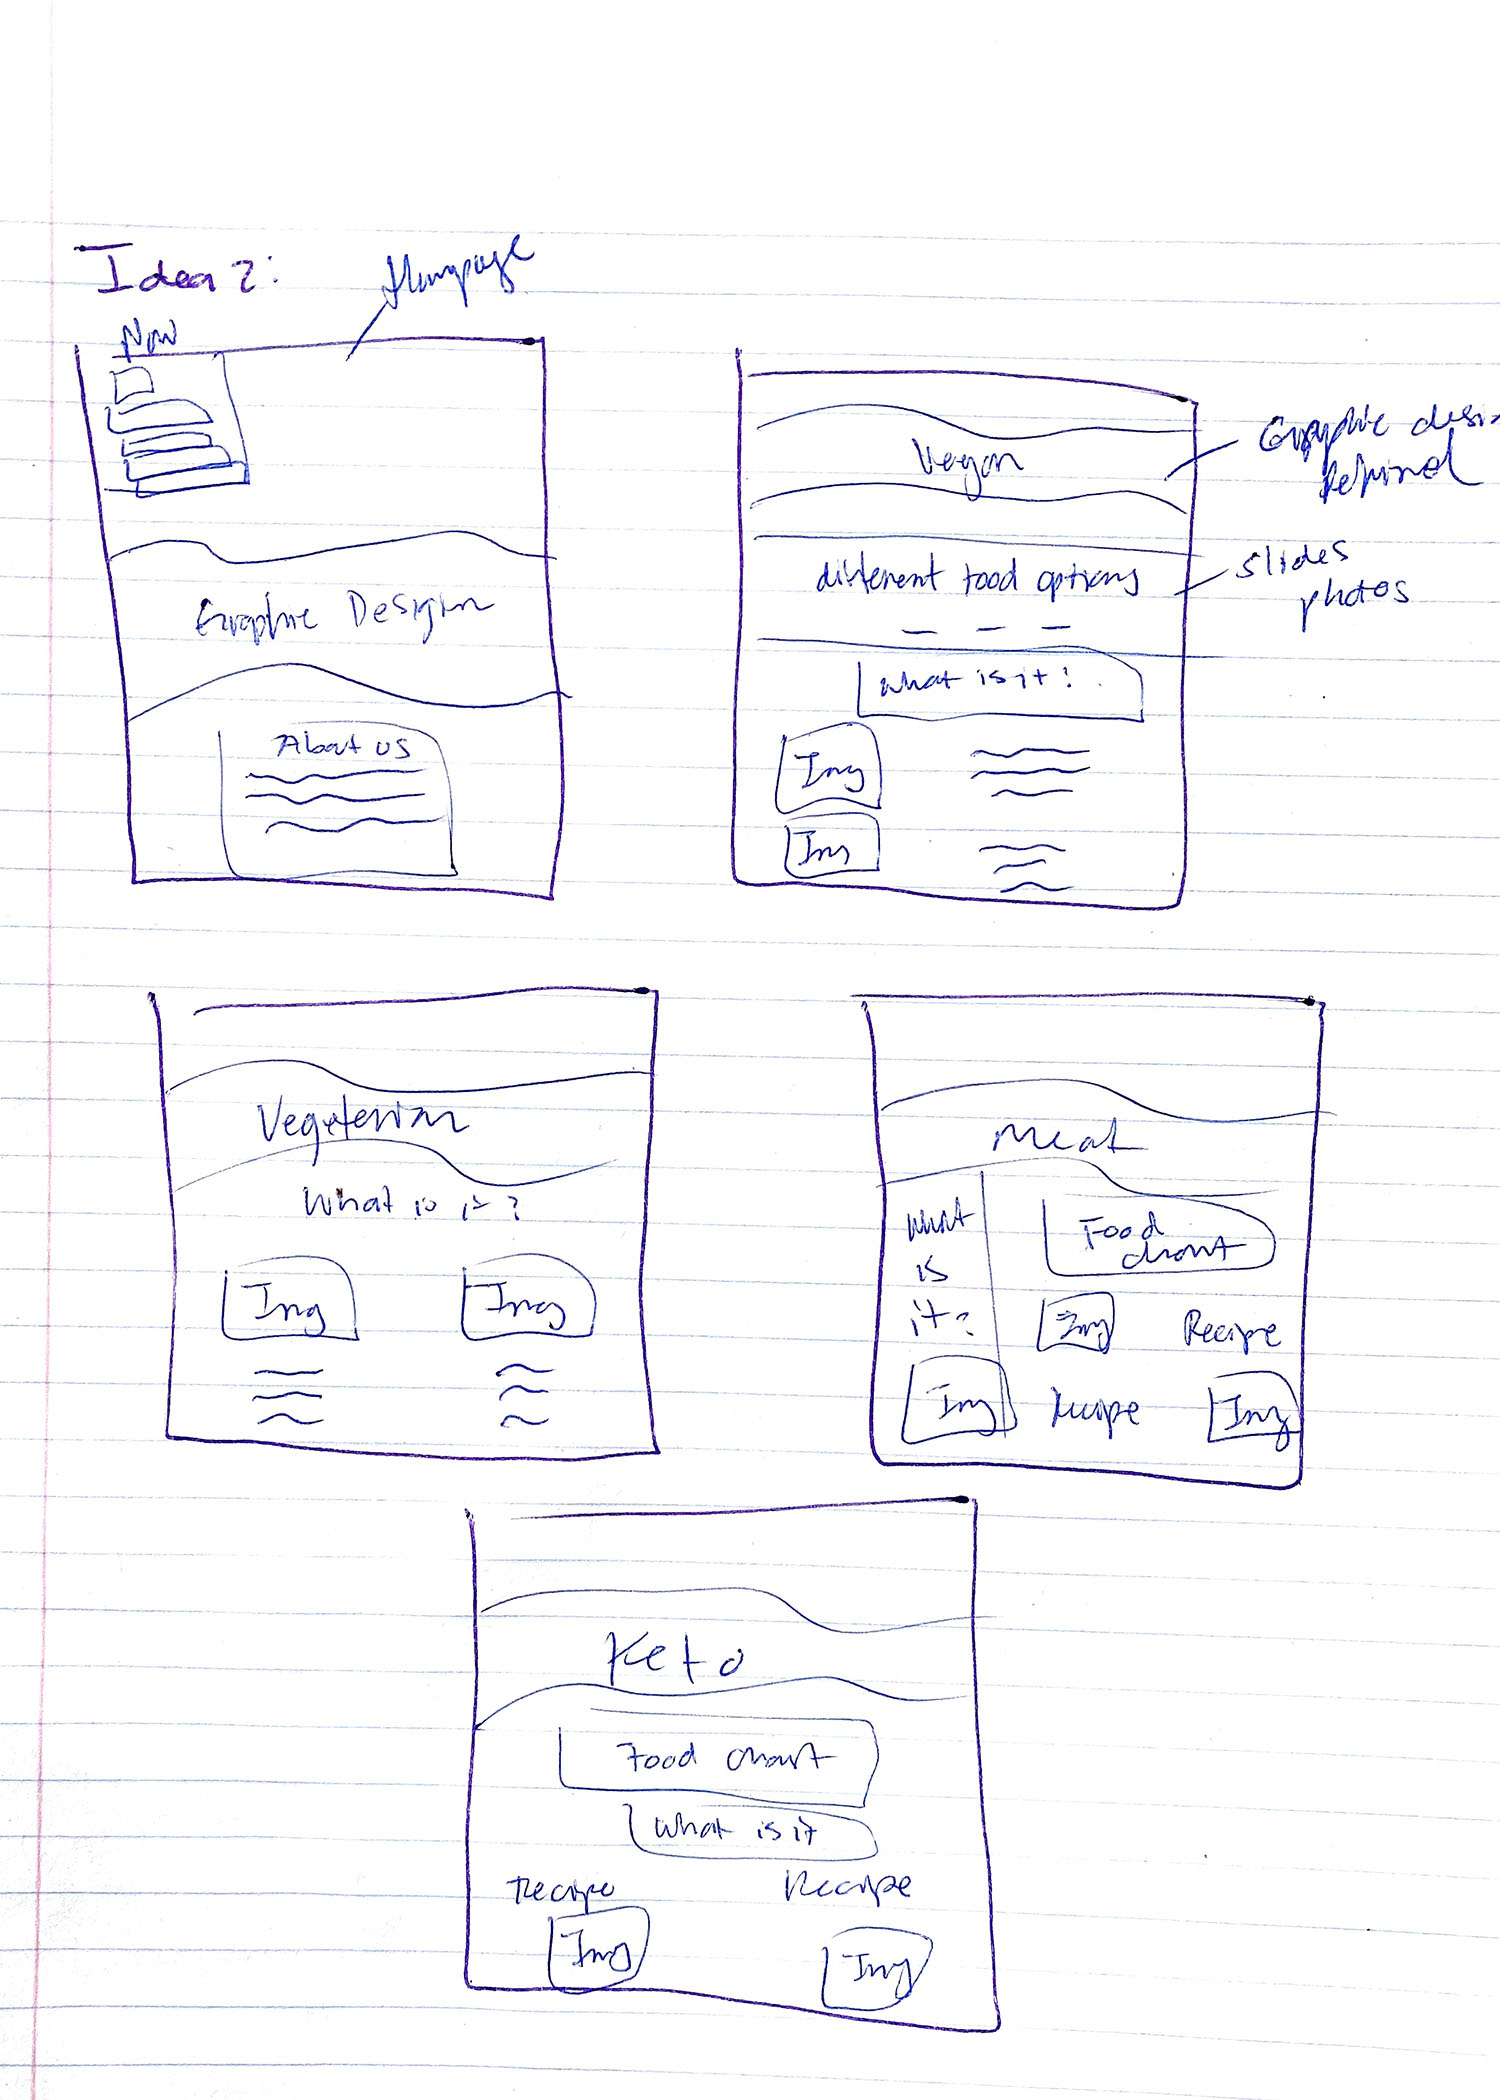 Idea 2:
Homepage
Nav
Graphic Design
About us
Vegan
Graphic desi
behind
different food options
slides
photos
What is it?
Img
Img
Vegeterian
What is it?
Img
Img
Meat
What
is
it?
Food
chart
Img
Recipe
Img
Recipe
Img
Keto
Food chart
What is it
Recipe
Recipe
Img
Img